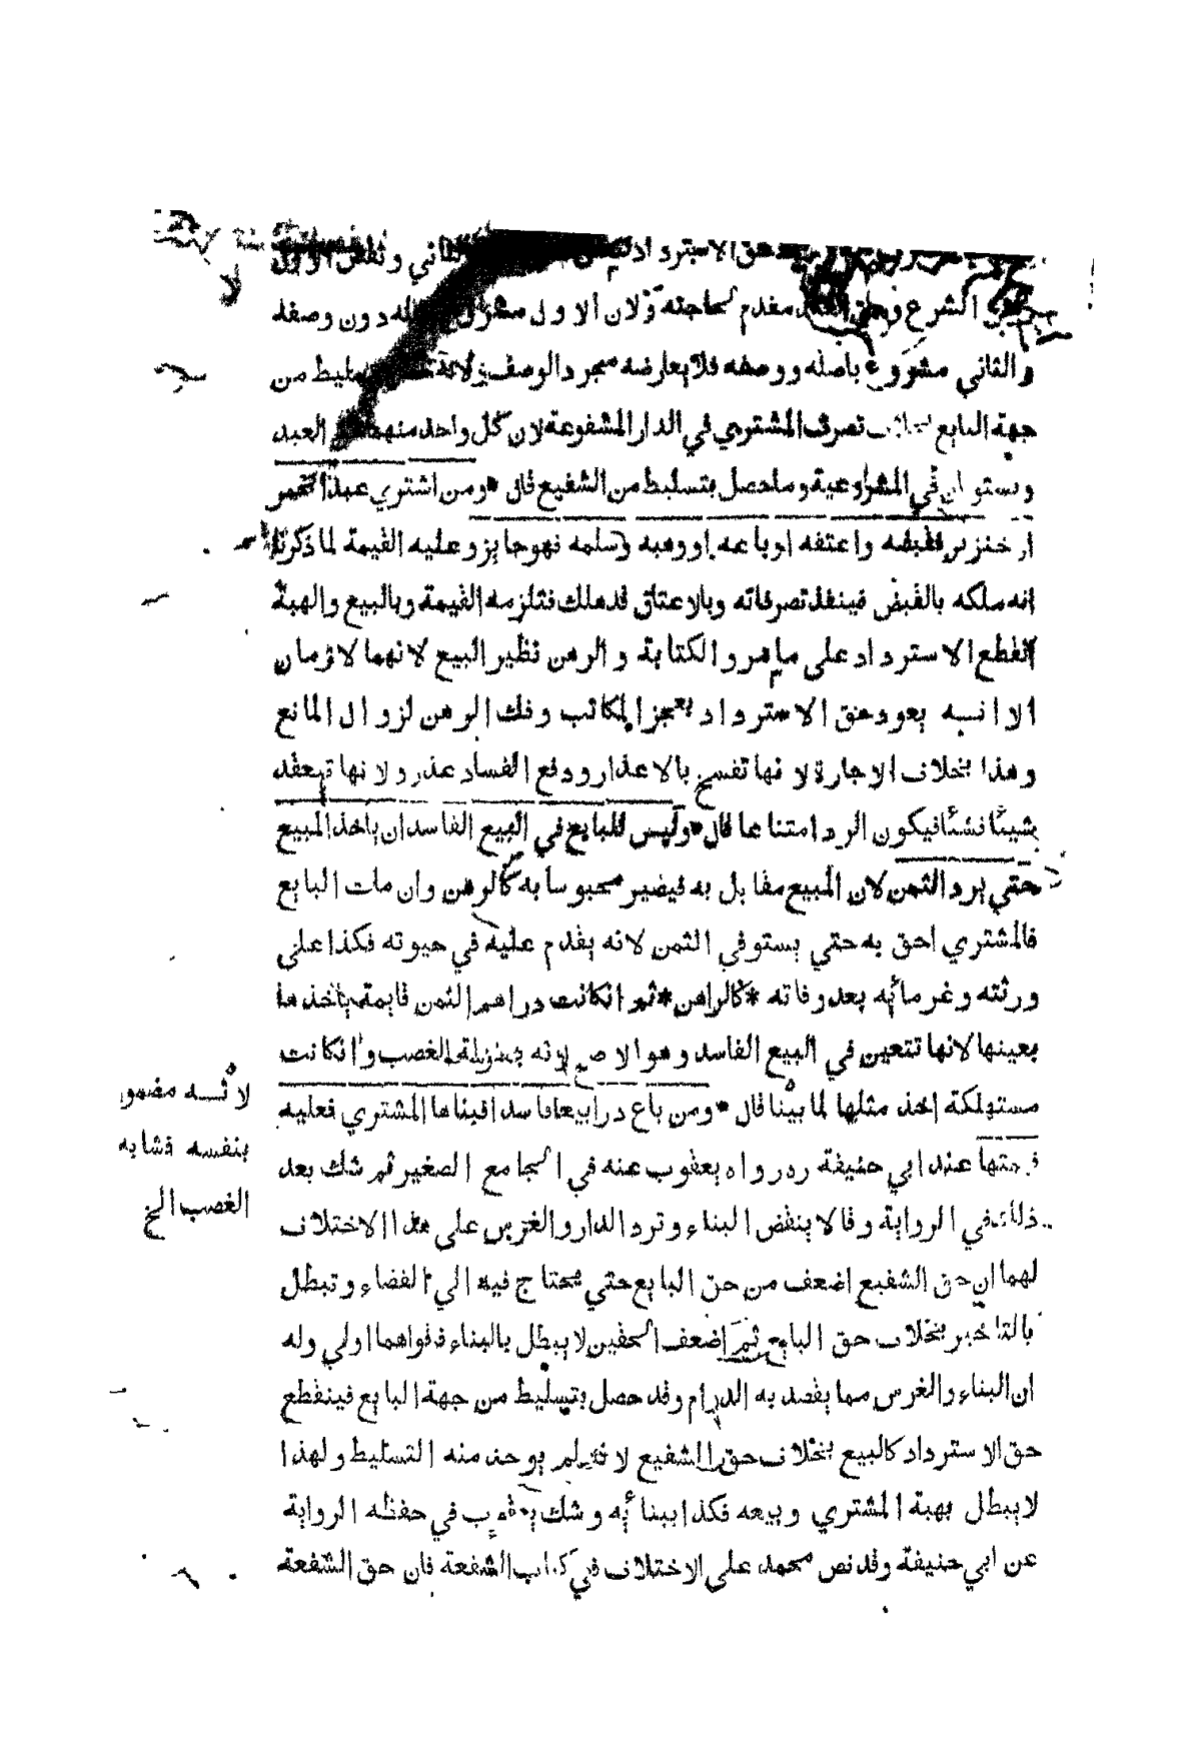 حق الاسترداد الثاني ونقض الاول
الشرع وحق مقدم لحاجته ولان الاول دون وصفه
والثاني مشروع باصله ووصفه فلا يعارضه مجرد الوصف من
جهة البايع تصرف المشتري في الدار المشفوعة لان كل واحد منهما العبد
ويستويان في المشروعية وما حصل بتسليط من الشفيع قال ومن اشتري عبدا بخمر
او خنزير فقبضه واعتقه او باعه او وهبه وسلمه فهو جايز وعليه القيمة لما ذكرنا
انه ملكه بالقبض فينفذ تصرفاته وبالاعتاق قد هلك فتلزمه القيمة وبالبيع والهبة
انقطع الاسترداد علي ما مر والكتابة والرهن نظير البيع لانهما لازمان
الا انه يعود حق الاسترداد بعجز المكاتب وفك الرهن لزوال المانع
وهذا بخلاف الاجارة لانها تفسخ بالاعذار ودفع الفساد عذر ولانها تنعقد
شيئا فشئا فيكون الرد امتناعا قال وليس للبايع في البيع الفاسد ان ياخذ المبيع
حتي يرد الثمن لان المبيع مقابل به فيضير محبوسا به كالرهن وان مات البايع
فالمشتري احق به حتي يستوفي الثمن لانه يقدم عليه في حيوته فكذا على
ورثته وغرمائه بعد وفاته *كالراهن* ثم انكانت دراهم الثمن قايمة ياخذها
بعينها لانها تتعين في البيع الفاسد وهو الاصح لانه بمنزلة الغصب وانكانت
مستهلكة اخذ مثلها لما بينا قال ومن باع دارا بيعا فاسدا فبناها المشتري فعليه
قيمتها عند ابي حنيفة رواه يعقوب عنه في الجامع الصغير ثم شك بعد
ذلك في الرواية وقالا ينقض البناء وترد الدار والغرس على هذا الاختلاف
لهما ان حق الشفيع اضعف من حق البايع حتي يحتاج فيه الي القضاء وتبطل
بالتاخير بخلاف حق البايع ثم اضعف الحقين لا يبطل بالبناء فاقواهما اولي وله
ان البناء والغرس مما يقصد به الدوام وقد حصل بتسليط من جهة البايع فينقطع
حق الاسترداد كالبيع بخلاف حق الشفيع لانه لم يوجد منه التسليط ولهذا
لا يبطل بهبة المشتري وبيعه فكذا ببنائه وشك يعقوب في حفظه الرواية
عن ابي حنيفة وقد نص محمد على الاختلاف في كتاب الشفعة فان حق الشفعة
لانه مضمون
بنفسه فشابه
الغصب الخ